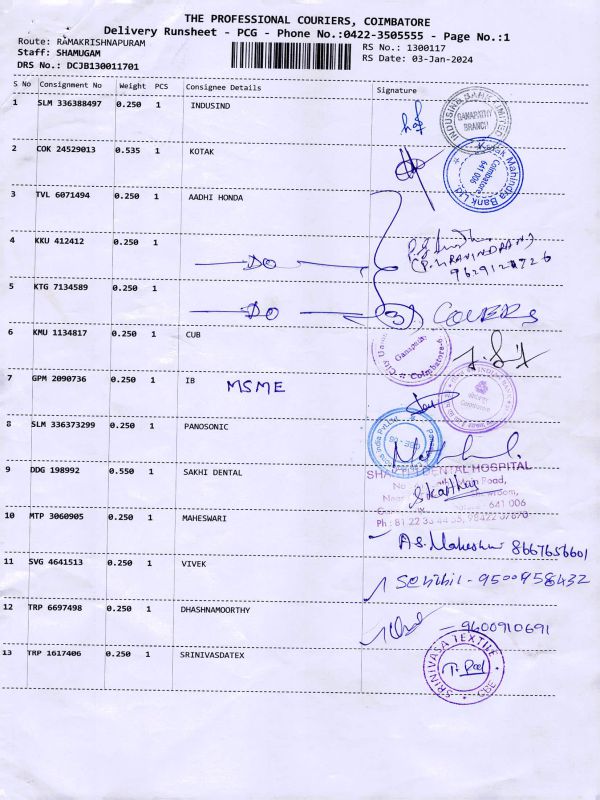 THE PROFESSIONAL COURIERS, COIMBATORE
Delivery Runsheet - PCG - Phone No.:0422-3505555 - Page No.:1
Route: RAMAKRISHNAPURAM
RS No.: 1300117
Staff: SHAMUGAM
RS Date: 03-Jan-2024
DRS No.: DCJB130011701
S No Consignment No Weight PCS Consignee Details Signature
1 SLM 336388497 0.250 1 INDUSIND
INDUSIND BANK LIMITED GANAPATHY BRANCH
2 COK 24529013 0.535 1 KOTAK
Kotak Mahindra Bank Ltd Coimbatore 641 006
3 TVL 6071494 0.250 1 AADHI HONDA
4 KKU 412412 0.250 1
DO
(P. RAVINDRAN)
5 KTG 7134589 0.250 1
DO
3 COVERS
6 KMU 1134817 0.250 1 CUB
City Union Ganapathy Coimbatore
7 GPM 2090736 0.250 1 IB MSME
8 SLM 336373299 0.250 1 PANOSONIC
9 DDG 198992 0.550 1 SAKHI DENTAL
DENTAL HOSPITAL
Road,
641 006
Ph : 81 22 33
10 MTP 3060905 0.250 1 MAHESWARI
A.S. Maheshwari 8667656601
11 SVG 4641513 0.250 1 VIVEK
Senthil - 9500958432
12 TRP 6697498 0.250 1 DHASHNAMOORTHY
- 9600910691
13 TRP 1617406 0.250 1 SRINIVASDATEX
SRINIVASA TEXTILE CBE